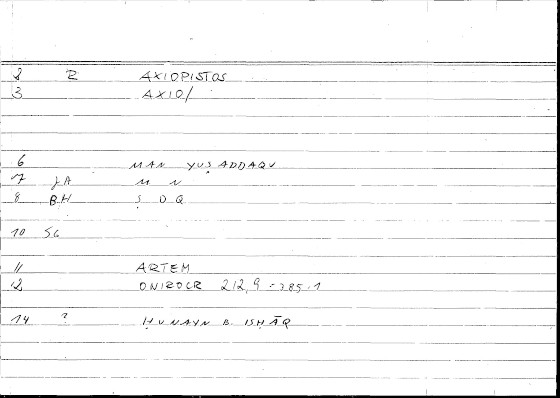 8 R AXIOPISTOS
3 AXIO/
6 MAN YUṢADDAQU
7 JA M N
8 BH Ṣ D Q
10 SG
11 ARTEM
12 ONIROCR 212,9 = 385.1
14 ? ḤUNAYN B. ISḤĀQ